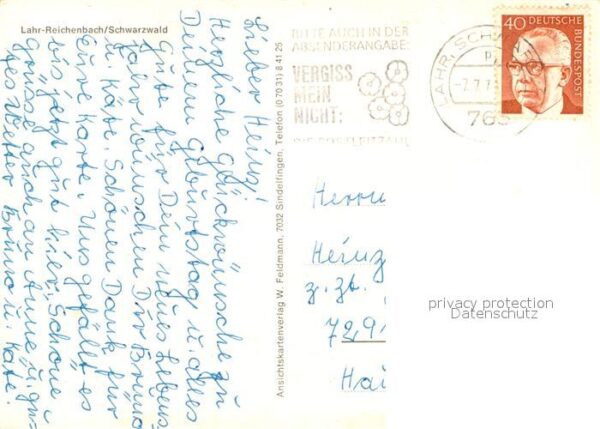 Lahr-Reichenbach/Schwarzwald
Lieber Heinz!
Herzliche Glückwünsche zu
Deinem Geburtstag u. alles
Gute für Dein neues Lebens-
jahr wünschen Dir Bruno
u. Käte. Schönen Dank für
Eure Karte. Uns gefällt es
bis jetzt gut hier. Schöne
Grüsse auch an Anne u. gu-
tes Wetter Bruno u. Käte.
Ansichtskartenverlag W. Feldmann, 7032 Sindelfingen, Telefon (0 70 31) 8 41 25
BITTE AUCH IN DER
ABSENDERANGABE:
VERGISS
MEIN
NICHT:
DIE POSTLEITZAHL
LAHR, SCHWARZW
-7.7.7
763
40 DEUTSCHE
BUNDESPOST
Herrn
Heinz
z. Zt.
7291
Hai
privacy protection
Datenschutz